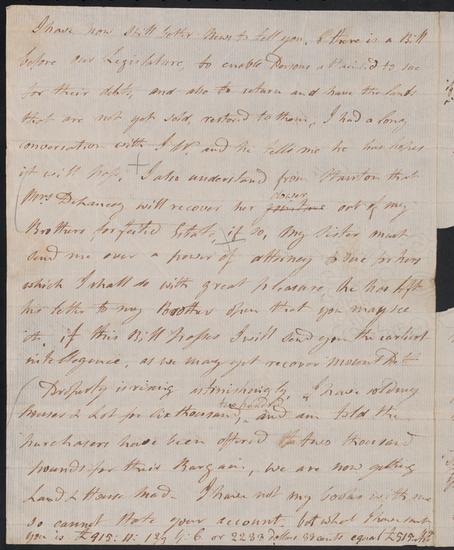 I have now still better News to tell you, & there is a Bill
before our Legislature, to enable Persons attainted to sue
for their debts, and also to return and have the lands
that are not yet sold, restored to them, I had a long
conversation with J. and he tells me he has hopes
it will pass. + I also understand from that
Mrs Delancey will recover her dower out of my
Brothers forfeited Estate, if so, my Sister must
send me over a power of attorney to sue for hers
which I shall do with great pleasure he has left
his letter to my Brother open that you may see
it. if this Bill passes I will send you the earliest
intellegence, as we may yet recover
Property is rising astonishingly, I have sold my
Houses & Lot for thousand five hundred, and am told the
purchasers have been offered two thousand
pounds for their Bargain, we are now getting
Land & House Mad. I have not my books with me
so cannot State your account. but what I have sent
you is £915:11: or 2283 Dollars 33 cents equal £515